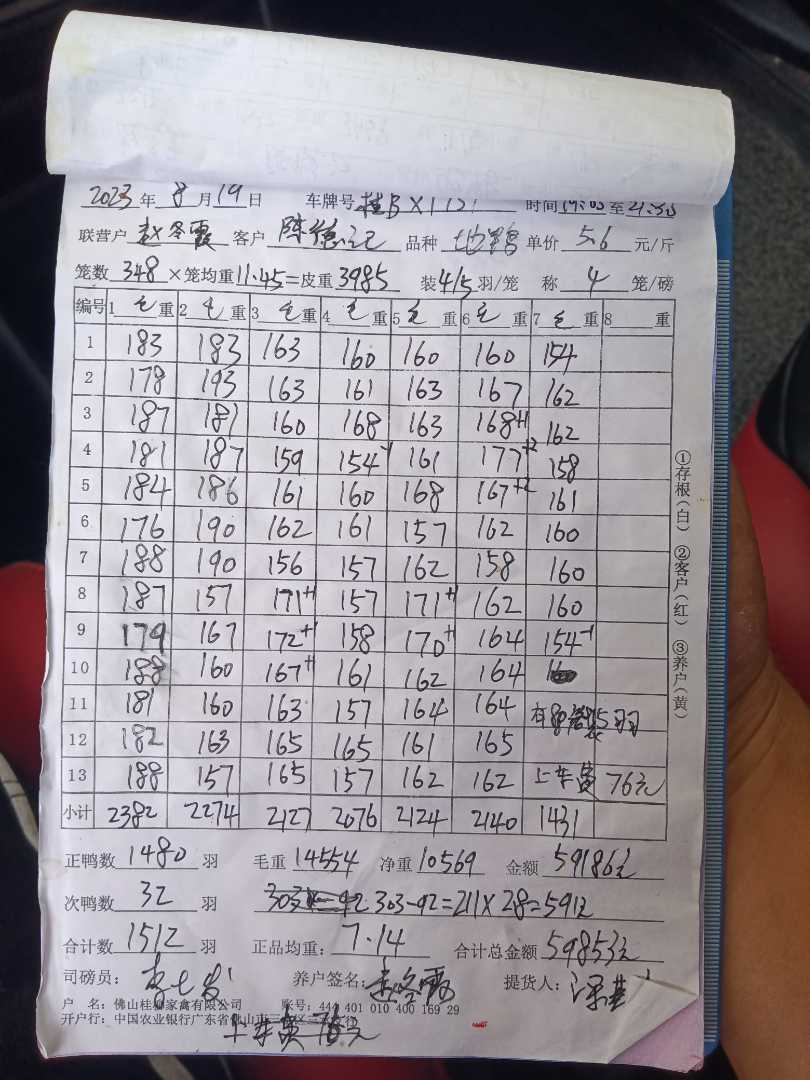 2023年8月19日 车牌号 桂B 时间 至
联营户 赵冬霞 客户 陈德记 品种 单价 5.6 元/斤
笼数 348 ×笼均重 11.45 =皮重 3985 装 4/5 羽/笼 称 4 笼/磅
编号 1 毛重 2 毛重 3 毛重 4 毛重 5 毛重 6 毛重 7 毛重 8 重
1 183 183 163 160 160 160 154
2 178 193 163 161 163 167 162
3 187 181 160 168 163 168+1 162
4 181 187 159 154-1 161 177+2 158
5 184 186 161 160 168 167+2 161
6 176 190 162 161 157 162 160
7 188 190 156 157 162 158 160
8 187 157 171+1 157 171+1 162 160
9 179 167 172+1 158 170+1 164 154-1
10 188 160 167+1 161 162 164
11 181 160 163 157 164 164 有 笼装5羽
12 182 163 165 165 161 165
13 188 157 165 157 162 162 上车费 76元
小计 2382 2274 2127 2076 2124 2140 1431
①存根(白) ②客户(红) ③养户(黄)
正鸭数 1480 羽 毛重 14554 净重 10569 金额 59186元
次鸭数 32 羽 303-92=211×2.8=591元
合计数 1512 羽 正品均重: 7.14 合计总金额 59853元
司磅员: 养户签名: 赵冬霞 提货人:
户 名: 佛山桂 家禽有限公司 账号: 444 401 010 400 169 29
开户行: 中国农业银行广东省佛山市三 区 支行
上车费 76元